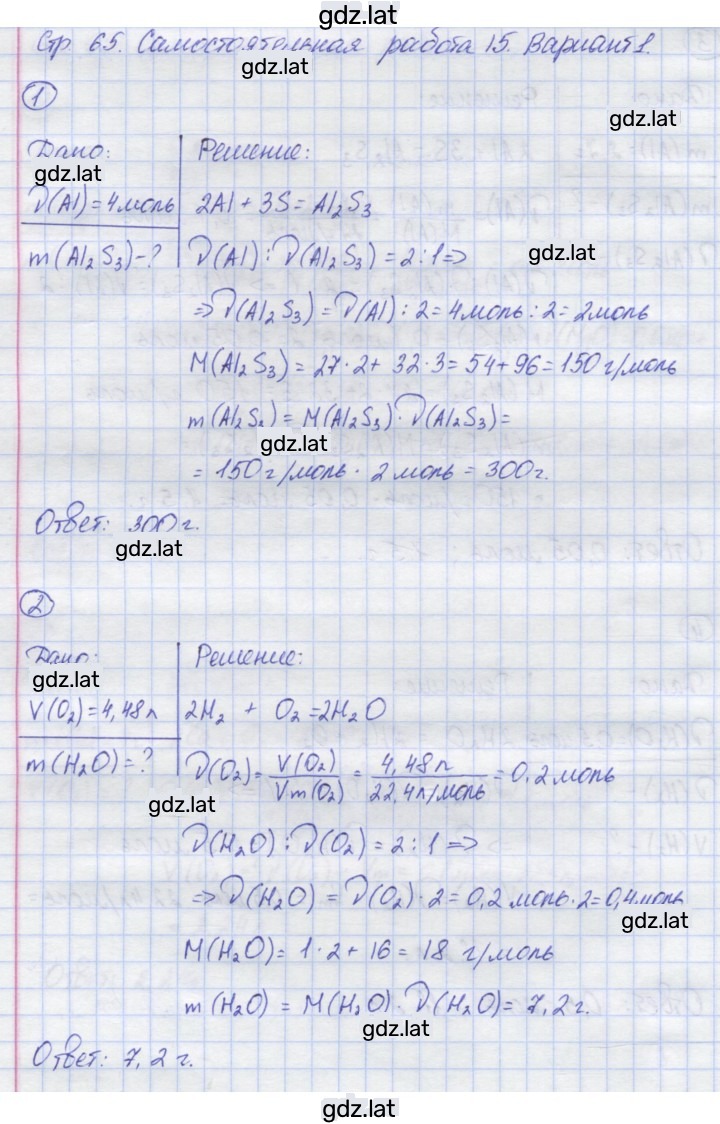 gdz.lat
Стр 65. Самостоятельная работа 15. Вариант 1.
gdz.lat
1
gdz.lat
Дано: Решение:
gdz.lat
ν(Al) = 4 моль 2Al + 3S = Al₂S₃
m(Al₂S₃) - ? ν(Al) : ν(Al₂S₃) = 2 : 1 =>
gdz.lat
=> ν(Al₂S₃) = ν(Al) : 2 = 4 моль : 2 = 2 моль
M(Al₂S₃) = 27 · 2 + 32 · 3 = 54 + 96 = 150 г/моль
m(Al₂S₃) = M(Al₂S₃) · ν(Al₂S₃) =
gdz.lat
= 150 г/моль · 2 моль = 300 г.
Ответ: 300 г.
gdz.lat
2
Дано: Решение:
gdz.lat
V(O₂) = 4,48 л 2H₂ + O₂ = 2H₂O
m(H₂O) = ? ν(O₂) = V(O₂) / Vm(O₂) = 4,48 л / 22,4 л/моль = 0,2 моль
gdz.lat
ν(H₂O) : ν(O₂) = 2 : 1 =>
=> ν(H₂O) = ν(O₂) · 2 = 0,2 моль · 2 = 0,4 моль
gdz.lat
M(H₂O) = 1 · 2 + 16 = 18 г/моль
m(H₂O) = M(H₂O) · ν(H₂O) = 7,2 г.
gdz.lat
Ответ: 7,2 г.
gdz.lat